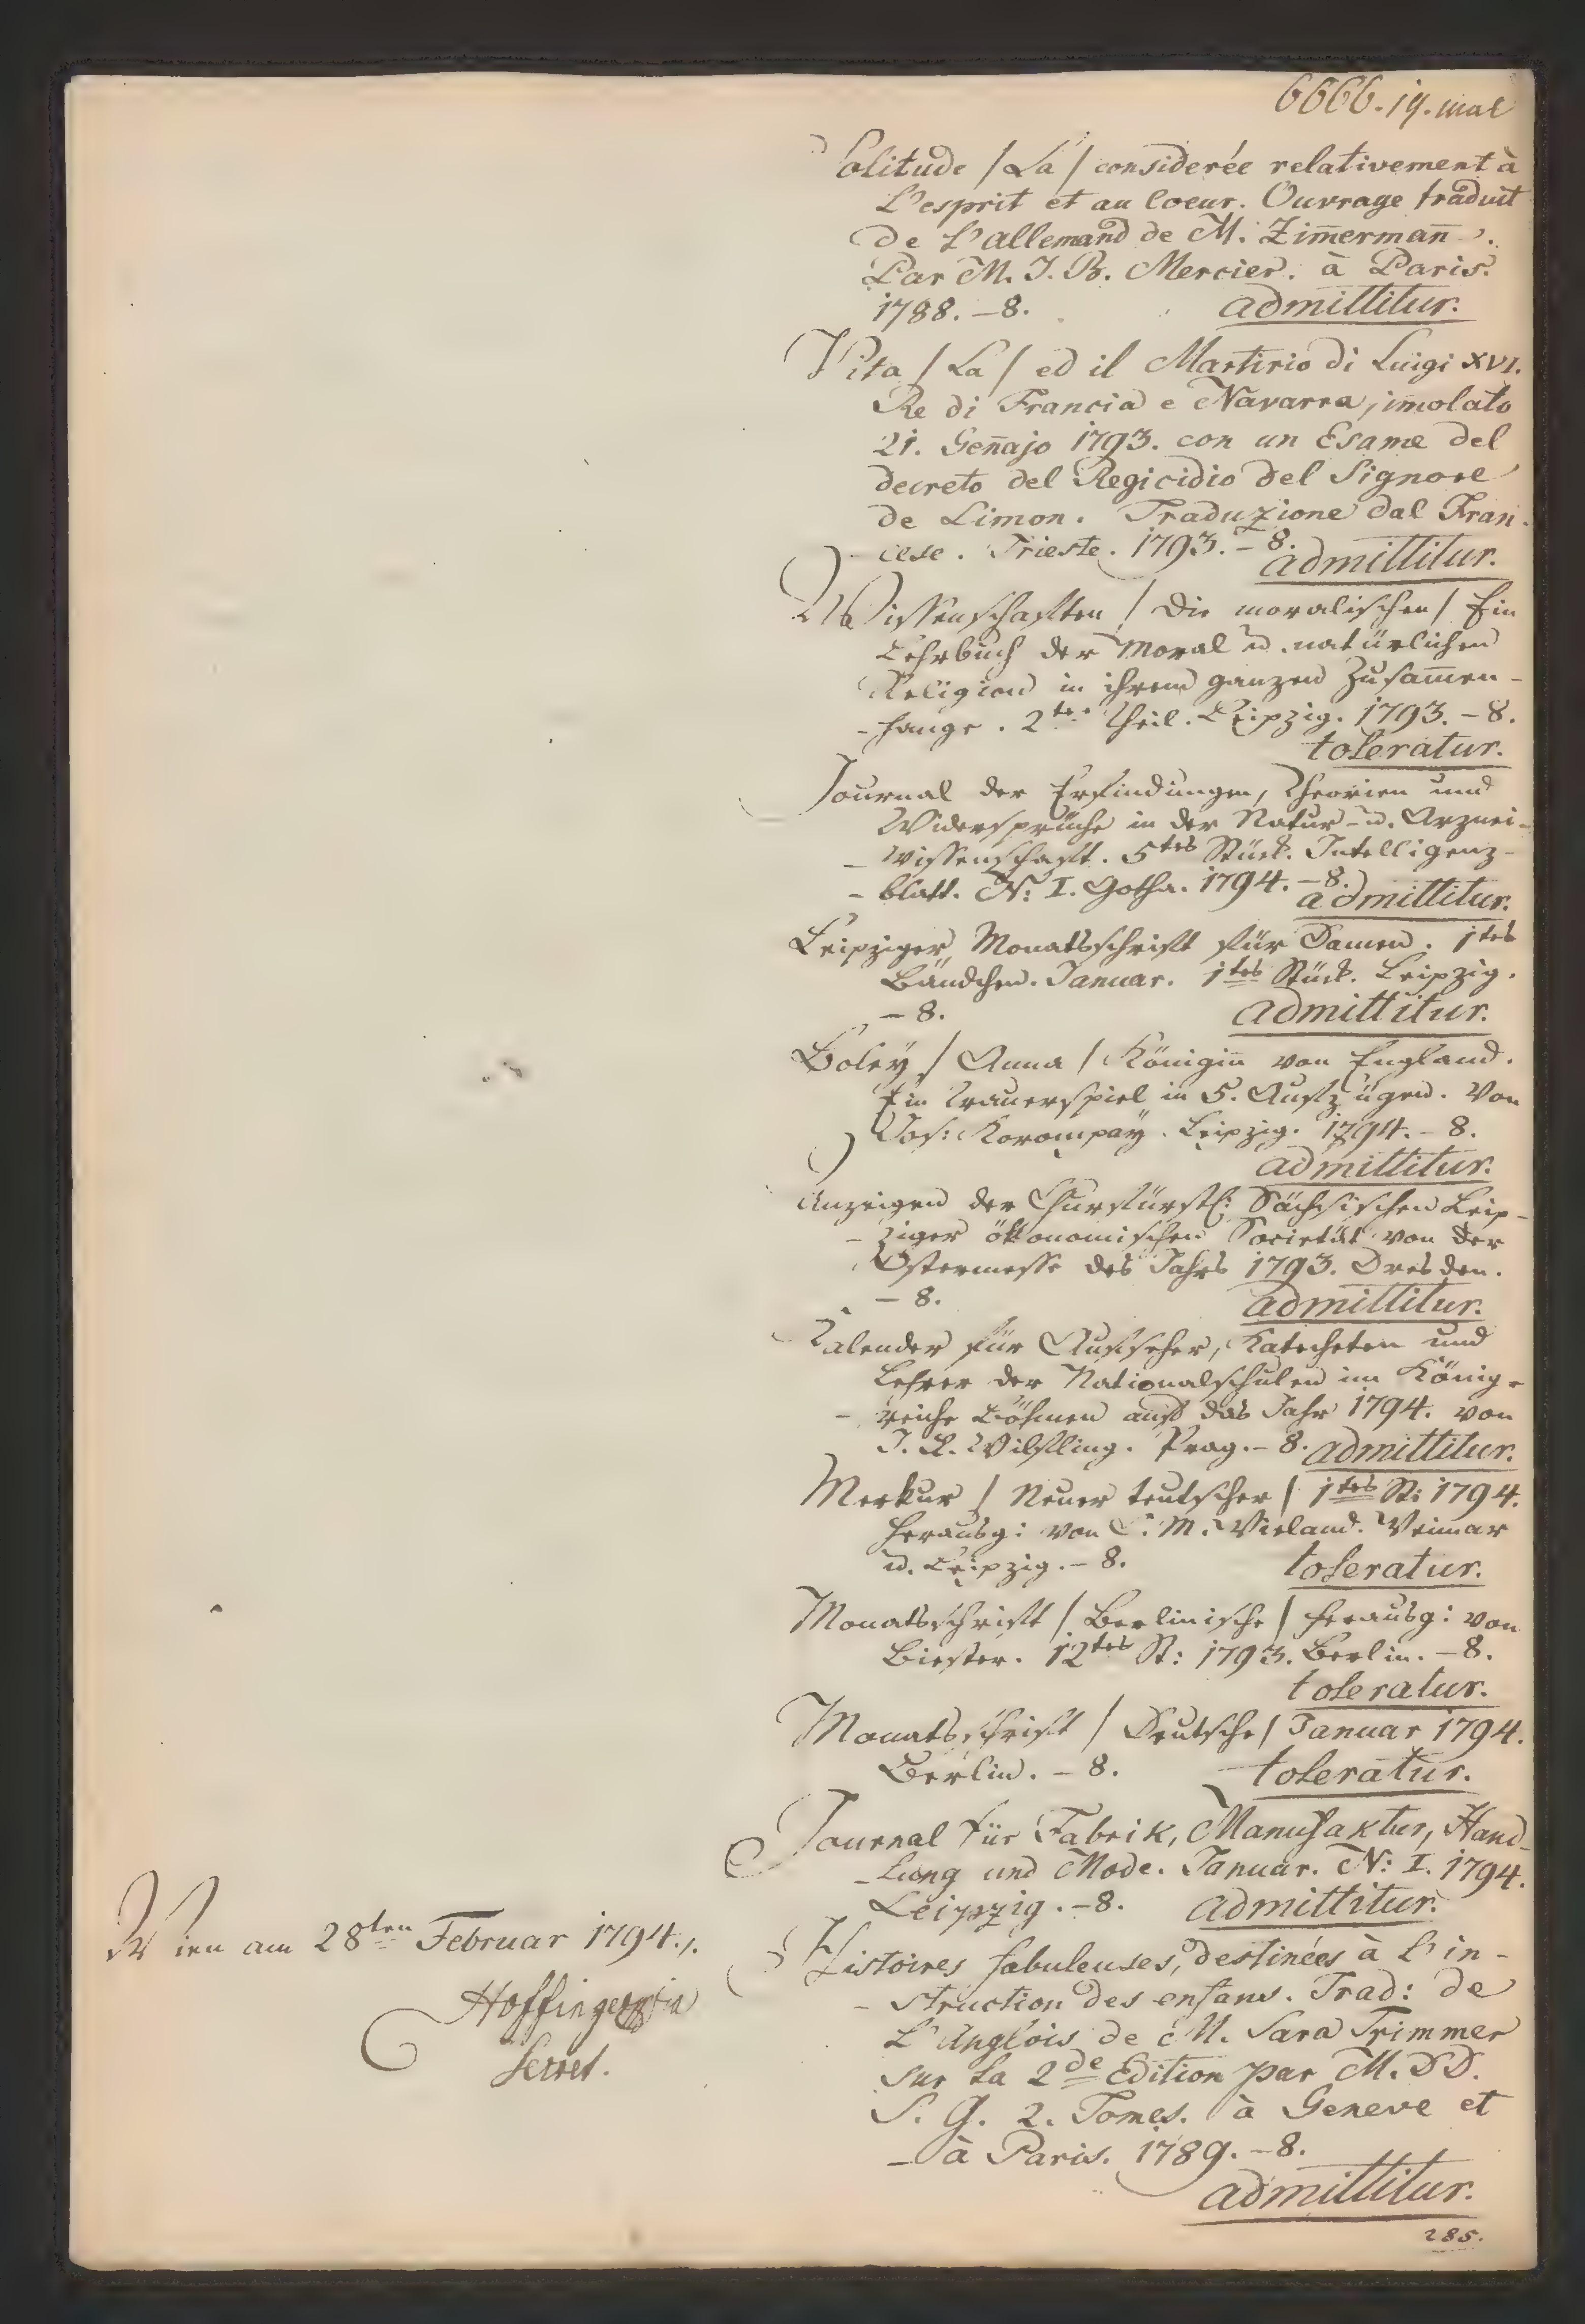 6666. 19. mal
Solitude / La / considerée relativement à
L'esprit et au Coeur. Ouvrage traduit
de L'allemand de M. Zim̄erman̄.
Par M. J. B. Mercier. à Paris.
1788. – 8. admittitur.
Vita / La / ed il Martirio di Luigi XVI.
Re di Francia e Navarra, im̄olato
21. Gen̄ajo 1793. con un Esame del
decreto del Regicidio del Signore
de Limon. Traduzione dal Fran-
- cese. Trieste. 1793. – 8.
admittitur.
Wissenschaften / Die moralischen / Ein
Lehrbuch der Moral u. natürlichen
Religion in ihrem ganzen Zusam̄en-
- hange. 2ter Theil. Leipzig. 1793. – 8.
toleratur.
Journal der Erfindungen, Theorien und
Widersprüche in der Natur- u. Arznei-
- wissenschaft. 5tes Stück. Intelligenz-
- blatt. N: I. Gotha. 1794. – 8.
admittitur.
Leipziger Monatsschrift für Damen. 1tes
Bändchen. Januar. 1tes Stück. Leipzig.
– 8. admittitur.
Boley / Anna / Königin̄ von England.
Ein Trauerspiel in 5. Aufzügen. Von
Jos: Korompay. Leipzig. 1794. – 8.
admittitur.
Anzeigen der Churfürstl: Sächsischen Leip-
- ziger ökonomischen Societät von der
Ostermesse des Jahrs 1793. Dresden.
– 8. admittitur.
Kalender für Aufseher, Katecheten und
Lehrer der Nationalschulen im König-
- reiche Böhmen auf das Jahr 1794. von
J. A. Wilfling. Prag. – 8. admittitur.
Merkur / Neuer teutscher / 1tes St: 1794.
herausg: von C. M. Wieland. Weimar
u. Leipzig. – 8. toleratur.
Monatsschrift / Berlinische / herausg: von
Biester. 12tes St: 1793. Berlin. – 8.
toleratur.
Monatsschrift / Deutsche / Januar 1794.
Berlin. – 8. toleratur.
Journal für Fabrik, Manufaktur, Hand-
- lung und Mode. Januar. N: I. 1794.
Leipzig. – 8. admittitur.
Histoires fabuleuses, destinées à l'in-
- struction des enfans. Trad: de
L'Anglois de M. Sara Trimmer
sur la 2de Edition par M. DD.
S. G. 2. Tomes. à Geneve et
- à Paris. 1789. – 8.
admittitur.
285.
Wien am 28ten Februar 1794.
Hoffinger
Secret.